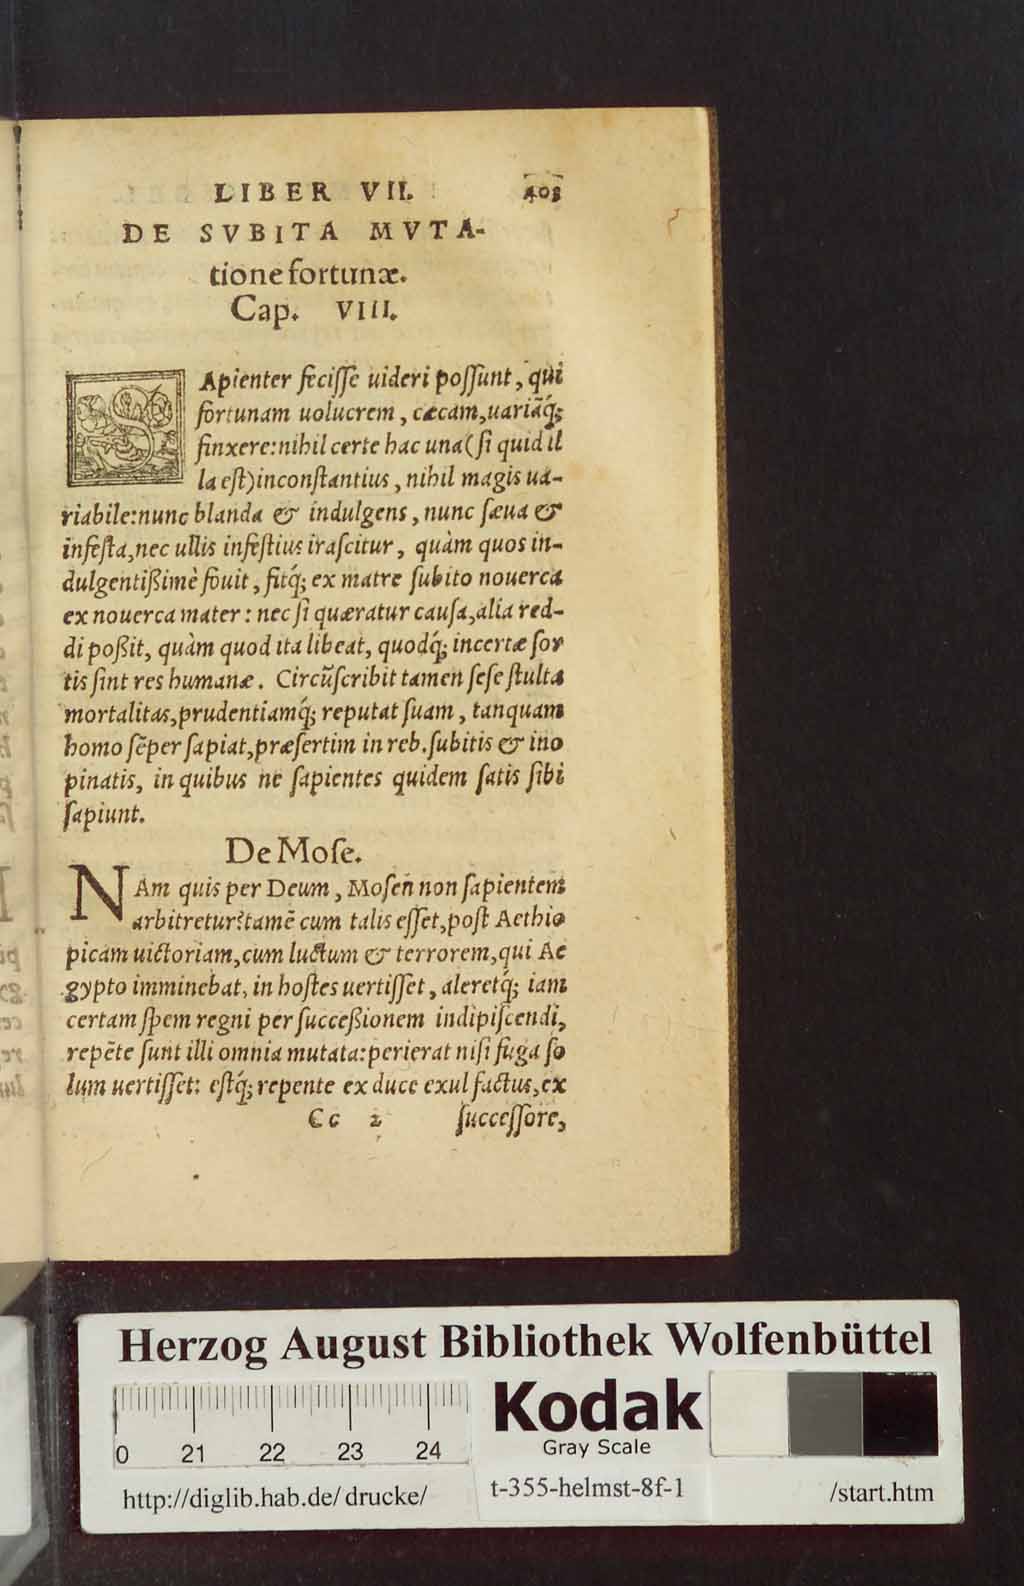 LIBER VII. 403
DE SVBITA MVTA-
tione fortunæ.
Cap. VIII.
SApienter feciſſe uideri poſſunt, qui
fortunam uolucrem, cæcam, uariãq́;
finxere: nihil certe hac una (ſi quid il
la eſt) inconſtantius, nihil magis ua-
riabile: nunc blanda & indulgens, nunc ſæua &
infeſta, nec ullis infeſtius iraſcitur, quàm quos in-
dulgentißimè fouit, fitq́; ex matre ſubito nouerca
ex nouerca mater: nec ſi quæratur cauſa, alia red-
di poßit, quàm quod ita libeat, quodq́; incertæ ſor
tis ſint res humanæ. Circũſcribit tamen ſeſe ſtulta
mortalitas, prudentiamq́; reputat ſuam, tanquam
homo sẽper ſapiat, præſertim in reb. ſubitis & ino
pinatis, in quibus ne ſapientes quidem ſatis ſibi
ſapiunt.
De Moſe.
NAm quis per Deum, Moſen̄ non ſapientem
arbitretur? tamẽ cum talis eſſet, poſt Aethio
picam uictoriam, cum luctum & terrorem, qui Ae
gypto imminebat, in hoſtes uertiſſet, aleretq́; iam
certam ſpem regni per ſucceßionem indipiſcendi,
repẽte ſunt illi omnia mutata: perierat niſi fuga ſo
lum uertiſſet: eſtq́; repente ex duce exul factus, ex
Cc 2 ſucceſſore,
Herzog August Bibliothek Wolfenbüttel
0 21 22 23 24
Kodak
Gray Scale
http://diglib.hab.de/drucke/ t-355-helmst-8f-1 /start.htm